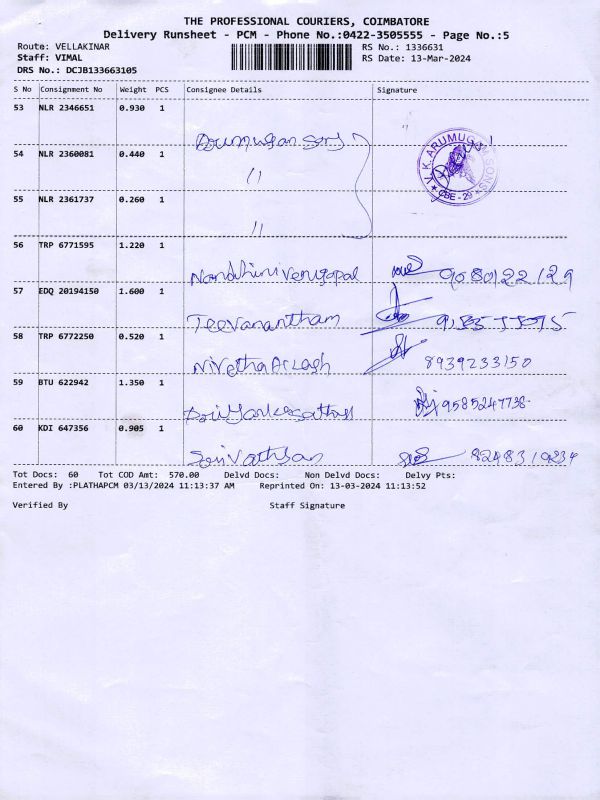 THE PROFESSIONAL COURIERS, COIMBATORE
Delivery Runsheet - PCM - Phone No.:0422-3505555 - Page No.:5
Route: VELLAKINAR RS No.: 1336631
Staff: VIMAL RS Date: 13-Mar-2024
DRS No.: DCJB133663105
S No Consignment No Weight PCS Consignee Details Signature
53 NLR 2346651 0.930 1
Arumugan Sons
V.K. ARUMUGAM SONS
★ CBE - 29 ★
54 NLR 2360081 0.440 1
"
55 NLR 2361737 0.260 1
"
56 TRP 6771595 1.220 1
Nandhini Venugopal 9080122129
57 EDQ 20194150 1.600 1
Jeevanantham
58 TRP 6772250 0.520 1
Nivetha 8939233150
59 BTU 622942 1.350 1
9585247738
60 KDI 647356 0.905 1
Srivathsan 8248319234
Tot Docs: 60 Tot COD Amt: 570.00 Delvd Docs: Non Delvd Docs: Delvy Pts:
Entered By :PLATHAPCM 03/13/2024 11:13:37 AM Reprinted On: 13-03-2024 11:13:52
Verified By Staff Signature